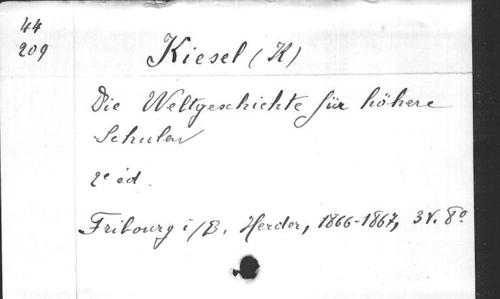 44
209
Kiesel (K)
Die Weltgeschichte für höhere
Schulen
2e éd.
Fribourg i/B, Herder, 1866-1867, 3 V. 8º